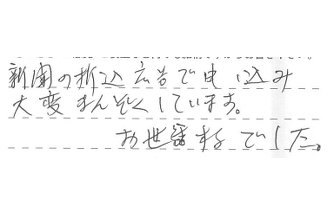 新聞の折込広告で申し込み
大変まんぞくしています。
お世話様でした。